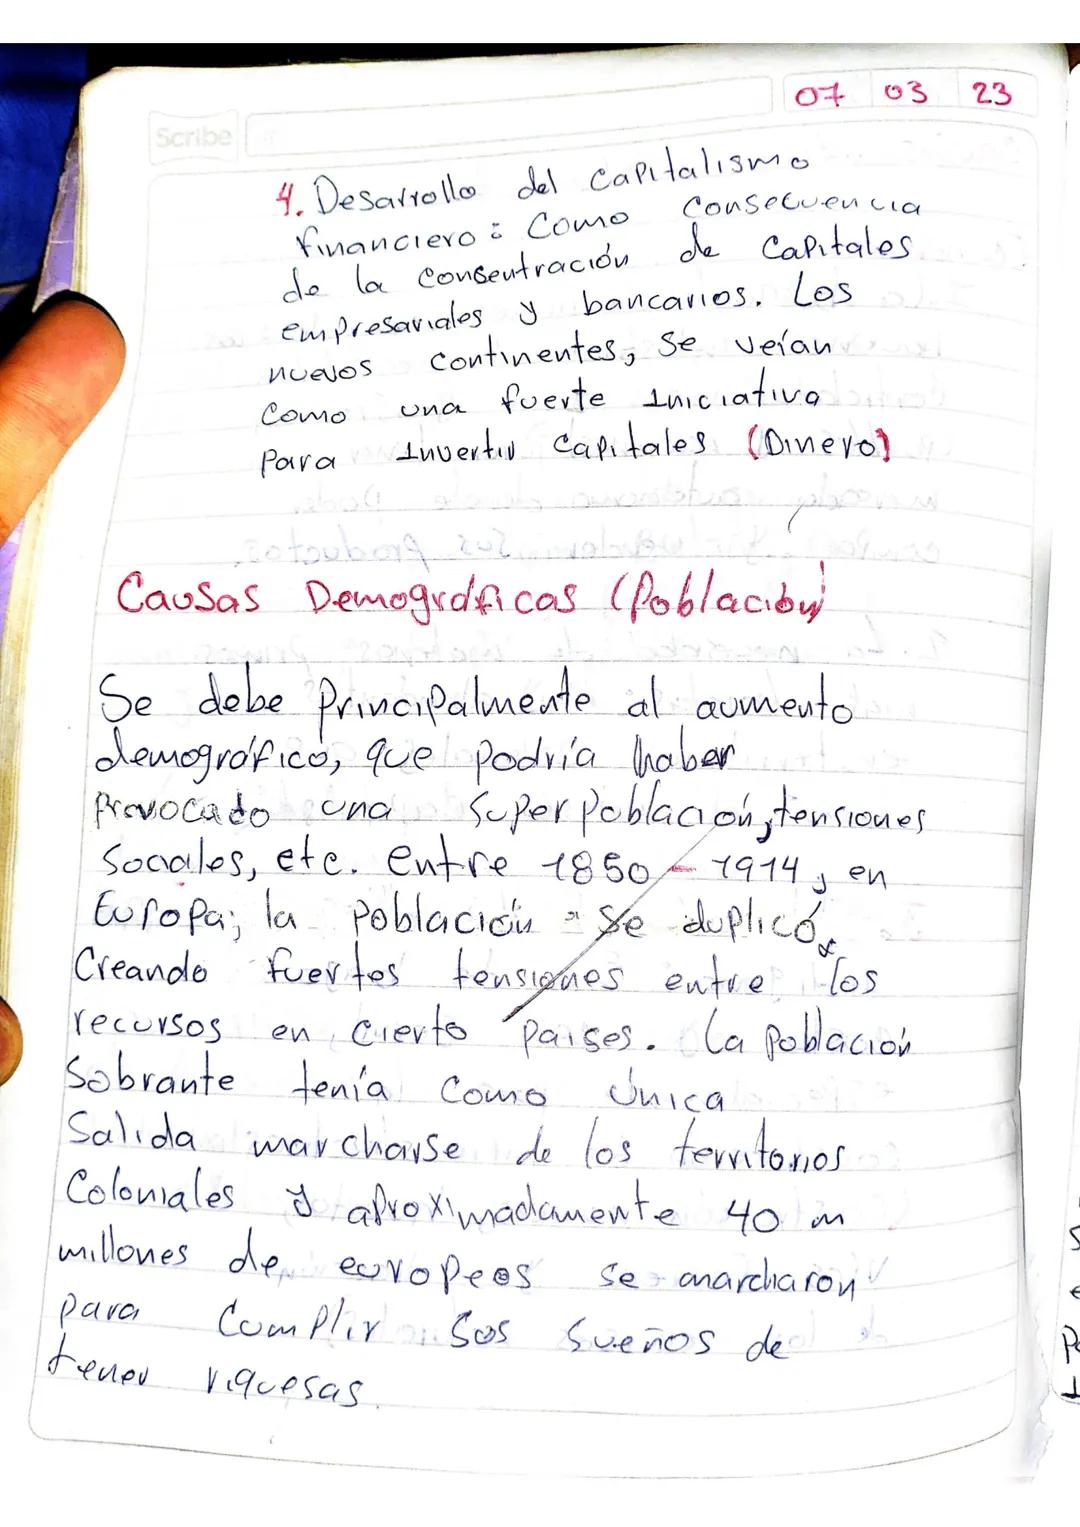 07 03 23
Scribe
4. Desarrollo del capitalismo
financiero: Como consecuencia
de la consentración de capitales
empresariales y bancarios. Los
nuevos continentes, se veían
como una fuerte iniciativa
para invertir capitales (Dinero)
Causas Demográficas (Población)
Se debe principalmente al aumento
demográfico, que podría haber
provocado una superpoblación, tensiones
sociales, etc. entre 1850 - 1914, en
Europa; la población se duplicó,
Creando fuertes tensiones entre los
recursos en cierto paises. La población
Sobrante tenía como única
Salida marcharse de los territorios
Coloniales y aproximadamente 40 m
millones de europeos se marcharon
para cumplir sus sueños de
tener riquesas.